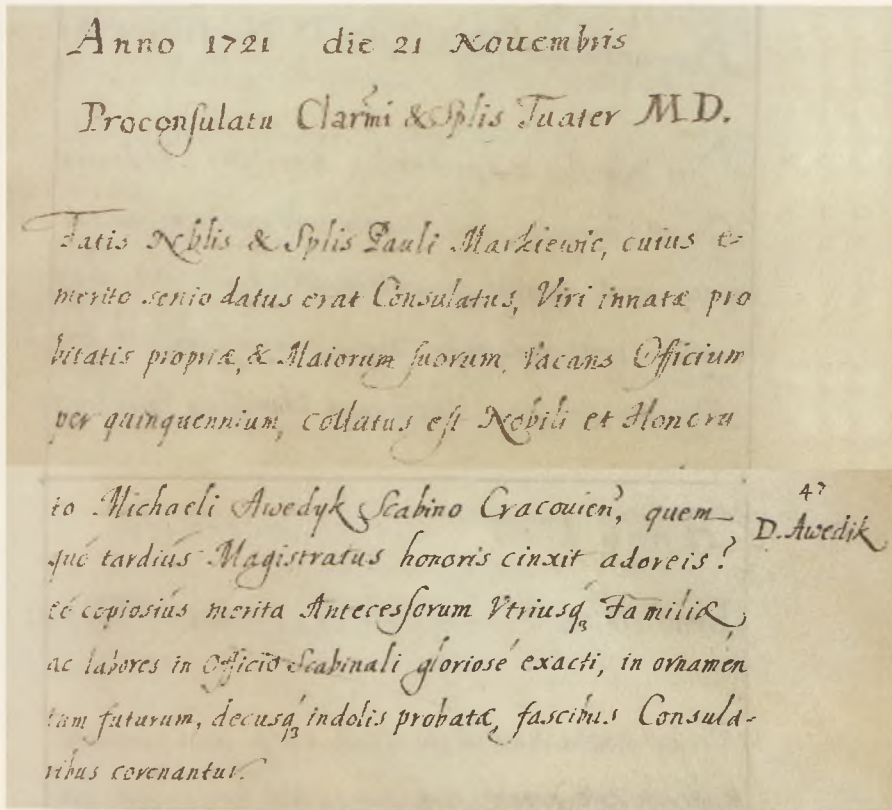 Anno 1721 die 21 Nouembris
Proconſulatu Clarm̃i & Splis Tuater M.D.
Fatis Nblis & Splis Pauli Markiewic, cuius e-
merito senio datus erat Consulatus, Viri innatæ pro
bitatis propriæ, & Maiorum ſuorum, Vacans Officium
per quinquennium, collatus eſt Nobili et Honora
to Michaeli Awedyk Scabino Cracouień, quem
47
D. Awedik
quó tardiùs Magistratus honoris cinxit adoreis?
eó copiosiùs merita Antecesſorum Vtriusq́ꝫ Familiæ,
ac labores in Officio Scabinali gloriosé exacti, in ornamén
tum futurum, decusq́ꝫ indolis probatæ, fascibus Consula-
ribus coronantur.